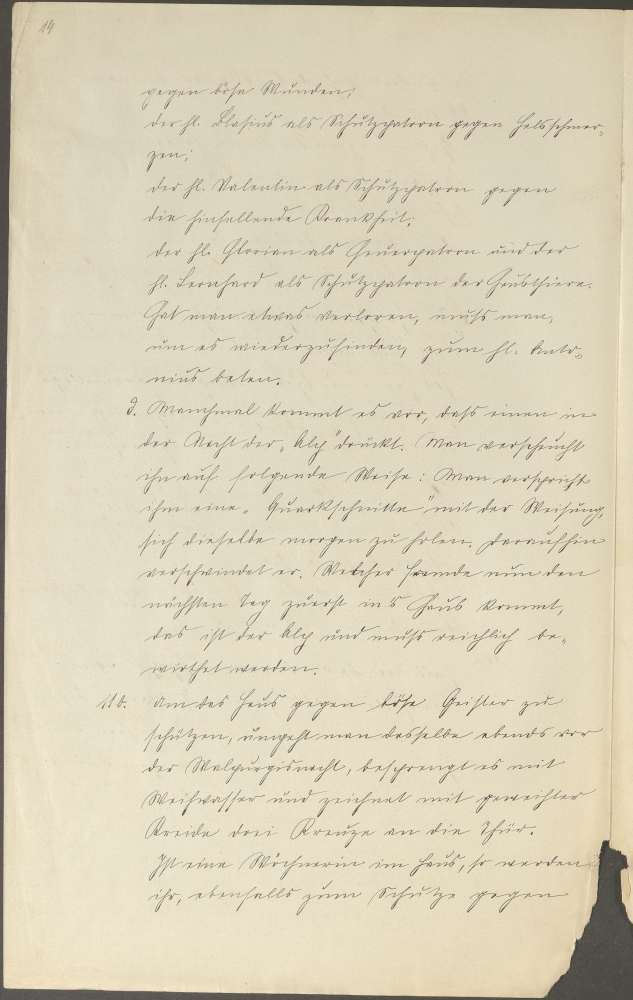 14
gegen böse Wunden;
der hl. Blasius als Schutzpatron gegen Halsschmer-
zen;
der hl. Valentin als Schutzpatron gegen
die hinfallende Krankheit;
der hl. Florian als Feuerpatron und der
hl. Leonhard als Schutzpatron der Hausthiere.
Hat man etwas verloren, muß man,
um es wiederzufinden, zum hl. Anto-
nius beten.
d. Manchmal kommt es vor, daß einen in
der Nacht der „Alp" drückt. Man verscheucht
ihn auf folgende Weise: Man verspricht
ihm eine „Quarkschnitte" mit der Weisung,
sich dieselbe morgen zu holen. Daraufhin
verschwindet er. Welcher Fremde nun den
nächsten Tag zuerst ins Haus kommt,
das ist der Alp und muß reichlich be-
wirthet werden.
Um das Haus gegen böse Geister zu
schützen, umgeht man dasselbe abends vor
der Walpurgisnacht, besprengt es mit
Weihwasser und zeichnet mit geweihter
Kreide drei Kreuze an die Thür.
Ist eine Wöchnerin im Haus, so werden
ihr, ebenfalls zum Schutze gegen